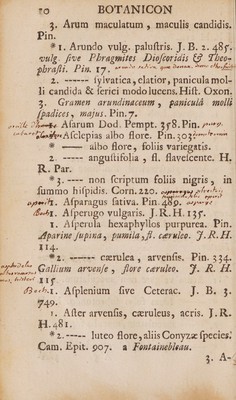 10 BOTANICON
3. Arum maculatum, maculis candidis.
Pin.
* 1. Arundo vulg. palustris. J. B. 2. 485.
vulg. sive Phragmites Dioscoridis & Theo-
phrasti. Pin. 17.
2. ----- sylvatica, elatior, panicula mol-
li candida & serici modo lucens. Hist. Oxon.
3. Gramen arundinaceum, paniculâ molli
spadicea, majus. Pin. 7.
Asarum Dod. Pempt. 358. Pin.
Asclepias albo flore. Pin. 303.
* — albo flore, foliis variegatis.
2. ----- angustifolia, fl. flavescente. H.
R. Par.
* 3. ---- non scriptum foliis nigris, in
summo hispidis. Corn. 220.
Asparagus sativa. Pin. 489.
1. Asperugo vulgaris. J. R. H. 135.
1. Asperula hexaphyllos purpurea. Pin.
Aparine supina, pumila, fl. cæruleo. J. R. H.
114.
* 2. ------ cærulea, arvensis. Pin. 334.
Gallium arvense, flore cæruleo. J. R. H.
115
1. Asplenium sive Ceterac. J. B. 3.
749.
1. Aster arvensis, cæruleus, acris. J. R.
H. 481.
* 2. ----- luteo flore, aliis Conyzæ species.
Cam. Epit. 907. a Fontainebleau.
3. A-